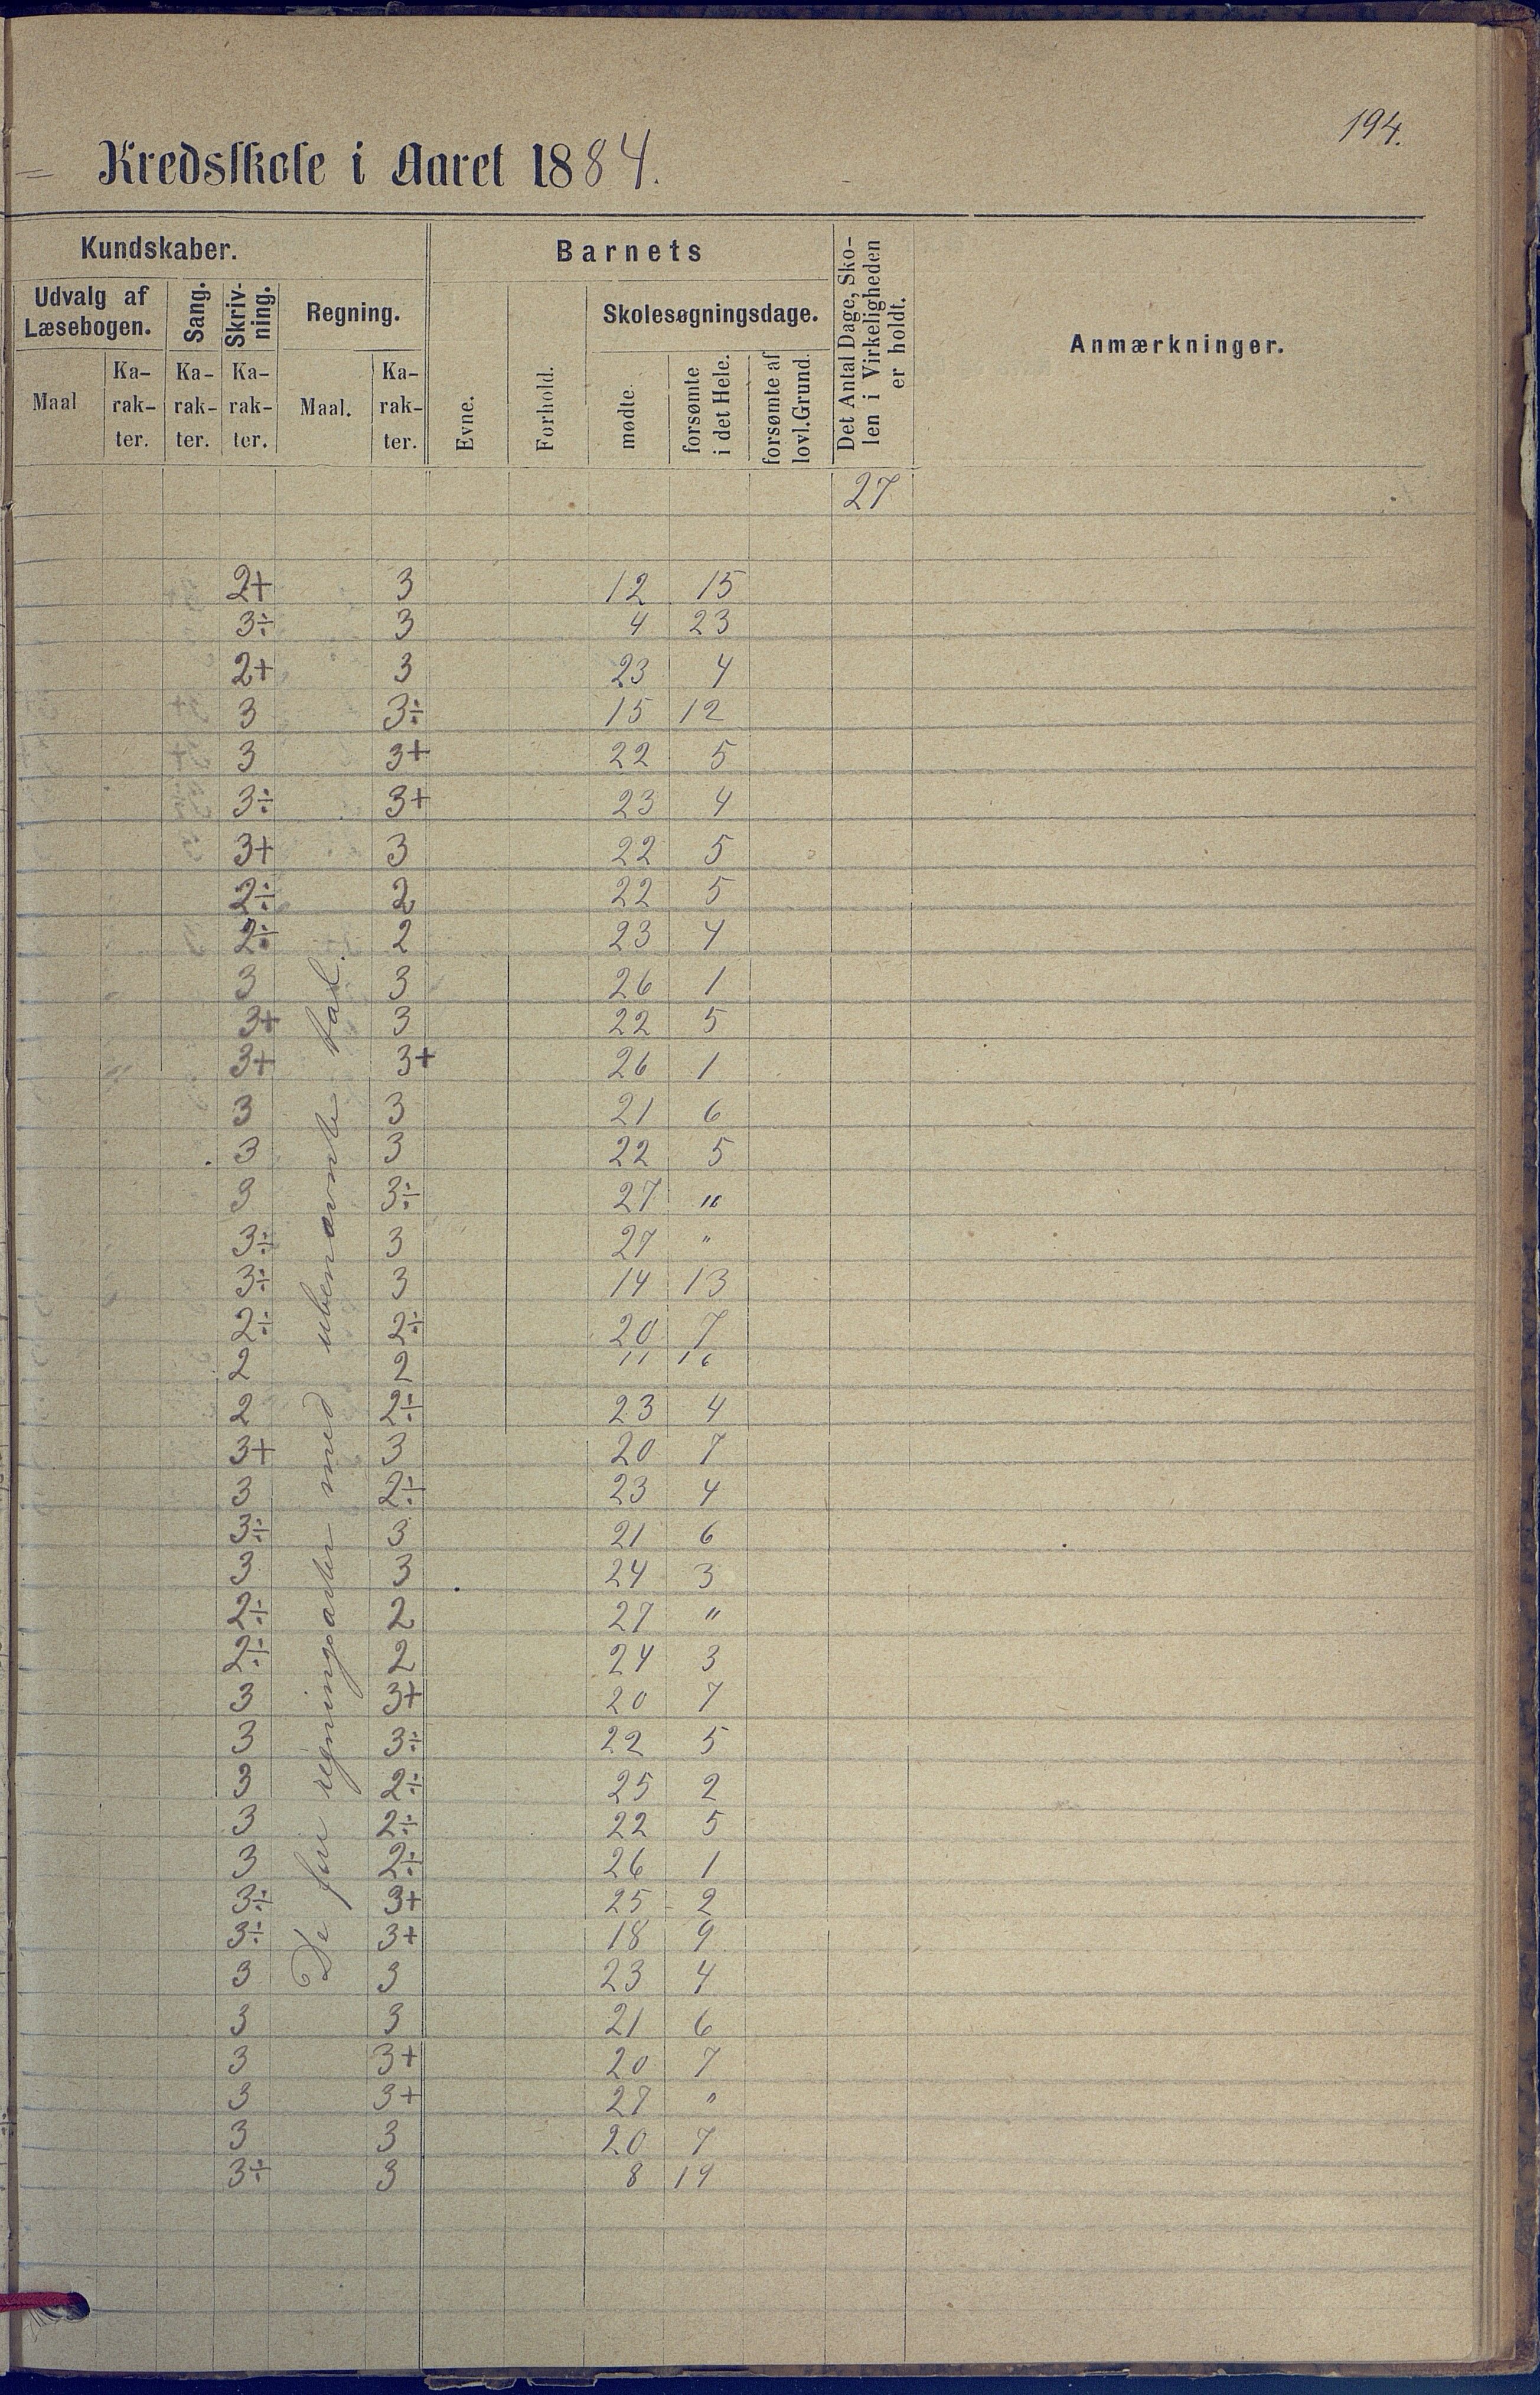 194.
= Kredsskole i Aaret 1884.
Kundskaber. Barnets Det Antal Dage, Sko-
len i Virkeligheden
er holdt. Anmærkninger.
Udvalg af
Læsebogen. Sang. Skriv-
ning. Regning. Skolesøgningsdage.
Maal Ka-
rak-
ter. Ka-
rak-
ter. Ka-
rak-
ter. Maal. Ka-
rak-
ter. Evne. Forhold. mødte forsømte
i det Hele. forsømte af
lovl. Grund.
27
De fire regningsarter med ubenævnte tal.
2+ 3 12 15
3÷ 3 4 23
2+ 3 23 4
3 3÷ 15 12
3 3+ 22 5
3÷ 3+ 23 4
3+ 3 22 5
2÷ 2 22 5
2÷ 2 23 4
3 3 26 1
3+ 3 22 5
3+ 3+ 26 1
3 3 21 6
3 3 22 5
3 3÷ 27 "
3÷ 3 27 "
3÷ 3 14 13
2÷ 2÷ 20 7
2 2 11 16
2 2÷ 23 4
3+ 3 20 7
3 2÷ 23 4
3÷ 3 21 6
3 3 24 3
2÷ 2 27 "
2÷ 2 24 3
3 3+ 20 7
3 3÷ 22 5
3 2÷ 25 2
3 2÷ 22 5
3 2÷ 26 1
3÷ 3+ 25 2
3÷ 3+ 18 9
3 3 23 4
3 3 21 6
3 3+ 20 7
3 3+ 27 "
3 3 20 7
3÷ 3 8 19